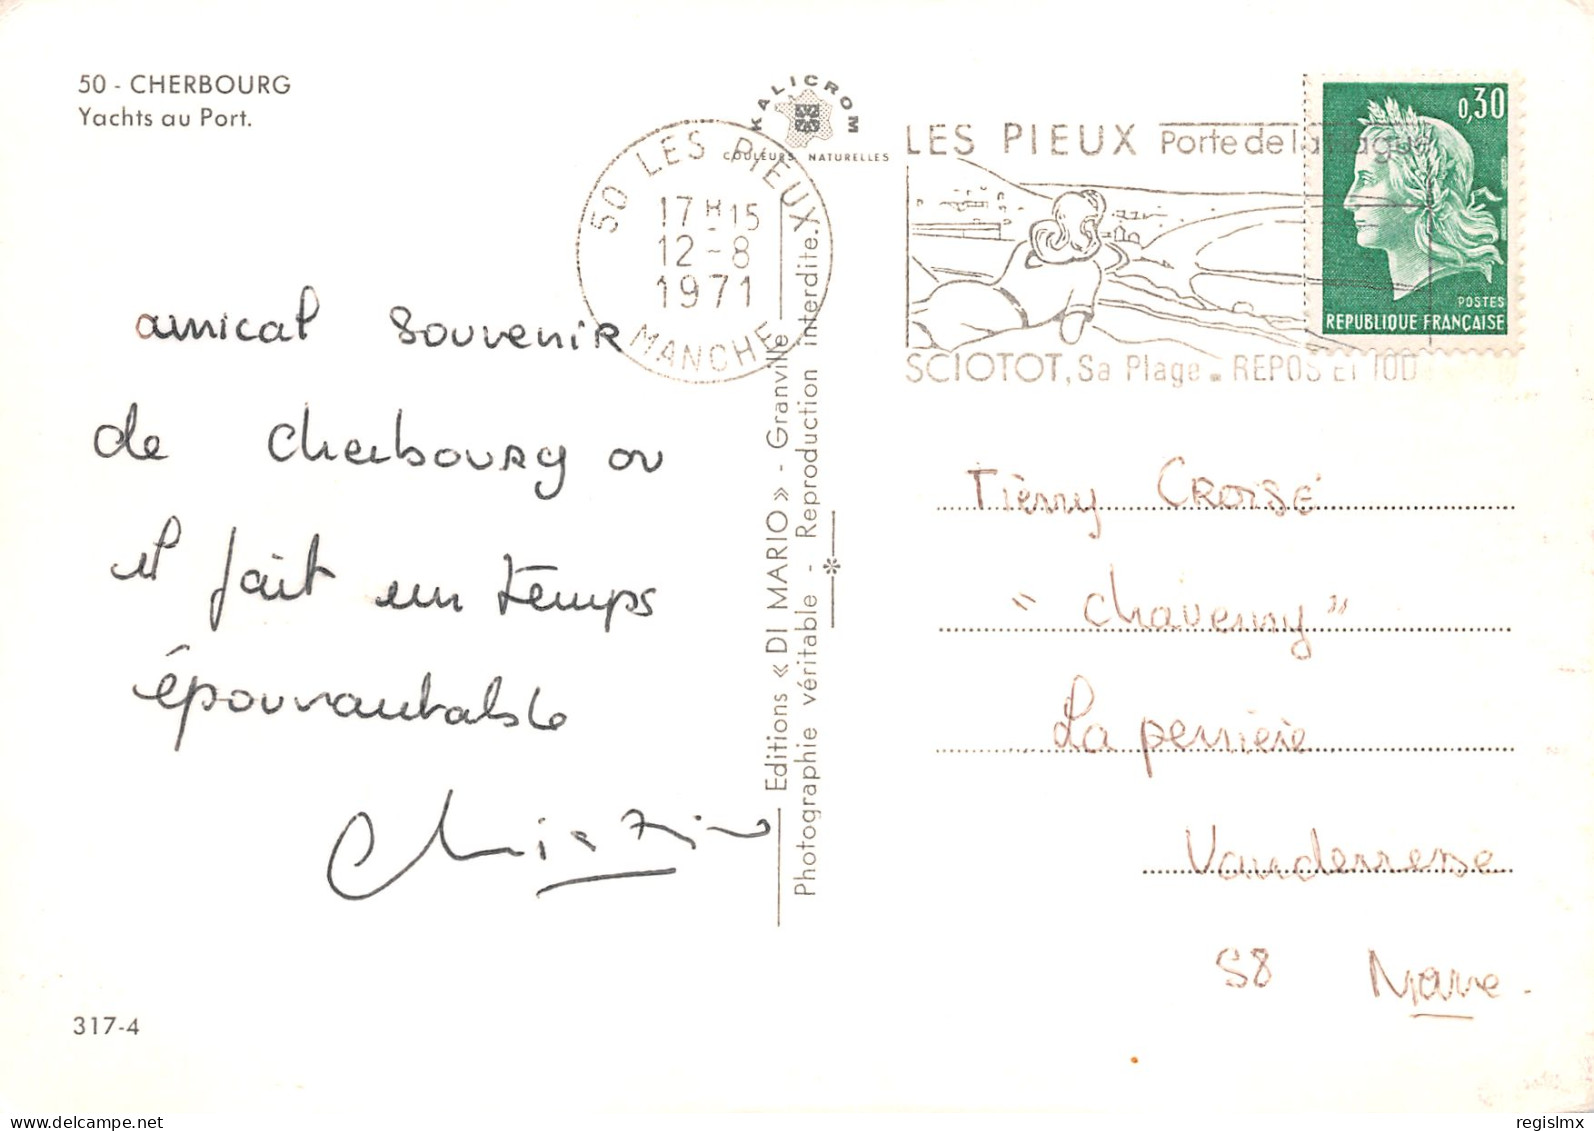 50 - CHERBOURG
Yachts au Port.
KALICROM
COULEURS NATURELLES
50 LES PIEUX
17H15
12-8
1971
MANCHE
LES PIEUX Porte de la Hague
SCIOTOT, Sa Plage. REPOS ET IOD
0,30
POSTES
REPUBLIQUE FRANÇAISE
amical souvenir
de Cherbourg ou
il fait un temps
épouvantable
Editions « DI MARIO » - Granville
Photographie véritable - Reproduction interdite.
Tierry CROISÉ
"Chavenny"
La perrière
Vandenesse
58 Nièvre.
317-4
regislmx